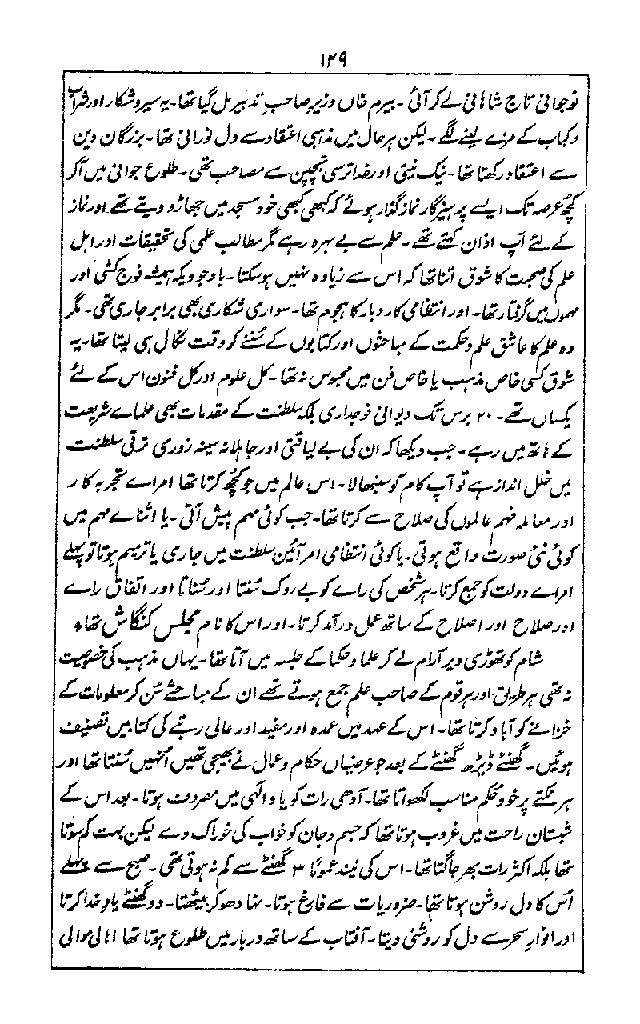 ۱۴۹
نوجوانی تاج شاہانی لے کر آئی - بیرم خاں وزیر صاحب تدبیر مل گیا تھا - یہ سیر و شکار اور شراب
و کباب کے مزے لینے لگے - لیکن ہر حال میں مذہبی اعتقاد سے دل نورانی تھا - بزرگان دین
سے اعتقاد رکھتا تھا - نیک نیتی اور خدا ترسی بچپن سے مصاحب تھی - طلوع جوانی میں آکر
کچھ عرصہ تک ایسے پرہیزگار نماز گزار ہوئے کہ کبھی کبھی خود مسجد میں جھاڑو دیتے تھے اور نماز
کے لئے آپ اذان کہتے تھے - علم سے بے بہرہ رہے مگر مطالب علمی کی تحقیقات اور اہل
علم کی صحبت کا شوق اتنا تھا کہ اس سے زیادہ نہیں ہو سکتا - باوجودیکہ ہمیشہ فوج کشی اور
مہموں میں گرفتار تھا - اور انتظامی کاروبار کا ہجوم تھا - سواری شکاری بھی برابر جاری تھی - مگر
وہ علم کا عاشق علم و حکمت کے مباحثوں اور کتابوں کے سننے کو وقت نکال ہی لیتا تھا - یہ
شوق کسی خاص مذہب یا خاص فن میں محبوس نہ تھا - کل علوم اور کل فنون اس کے لئے
یکساں تھے - ۲۰ برس تک دیوانی فوجداری بلکہ سلطنت کے مقدمات بھی علماے شریعت
کے ہاتھ میں رہے - جب دیکھا کہ ان کی بے لیاقتی اور جاہلانہ سینہ زوری ترقی سلطنت
میں خلل انداز ہے تو آپ کام کو سنبھالا - اس عالم میں جو کچھ کرتا تھا امراے تجربہ کار
اور معاملہ فہم عالموں کی صلاح سے کرتا تھا - جب کوئی مہم پیش آتی - یا اثناے مہم میں
کوئی نئی صورت واقع ہوتی - یا کوئی انتظامی امر آئین سلطنت میں جاری یا ترمیم ہوتا تو پہلے
امراے دولت کو جمع کرتا - ہر شخص کی راے کو بے روک سنتا اور سناتا اور اتفاق راے
اور صلاح اور اصلاح کے ساتھ عمل درآمد کرتا - اور اس کا نام مجلس کنگاش تھا ٭
شام کو تھوڑی دیر آرام لے کر علما و حکما کے جلسہ میں آتا تھا - یہاں مذہب کی خصوصیت
نہ تھی ہر طریق اور ہر قوم کے صاحب علم جمع ہوتے تھے ان کے مباحثے سن کر معلومات کے
خزانے کو آباد کرتا تھا - اس کے عہد میں عمدہ اور مفید اور عالی رتبے کی کتابیں تصنیف
ہوئیں - گھنٹے ڈیڑھ گھنٹے کے بعد جو عرضیاں حکام و عمال نے بھیجی تھیں انہیں سنتا تھا اور
ہر نکتے پر خود حکم مناسب لکھواتا تھا - آدھی رات کو یاد الٰہی میں مصروف ہوتا - بعد اس کے
شبستان راحت میں غروب ہوتا تھا کہ جسم و جان کو خواب کی خوراک دے لیکن بہت کم سوتا
تھا بلکہ اکثر رات بھر جاگتا تھا - اس کی نیند عموماً ۳ گھنٹے سے کم نہ ہوتی تھی - صبح سے پہلے
اس کا دل روشن ہوتا تھا - ضروریات سے فارغ ہوتا - نہا دھو کر بیٹھتا - دو گھنٹے یاد خدا کرتا
اور انوار سحر سے دل کو روشنی دیتا - آفتاب کے ساتھ دربار میں طلوع ہوتا تھا اہالی موالی